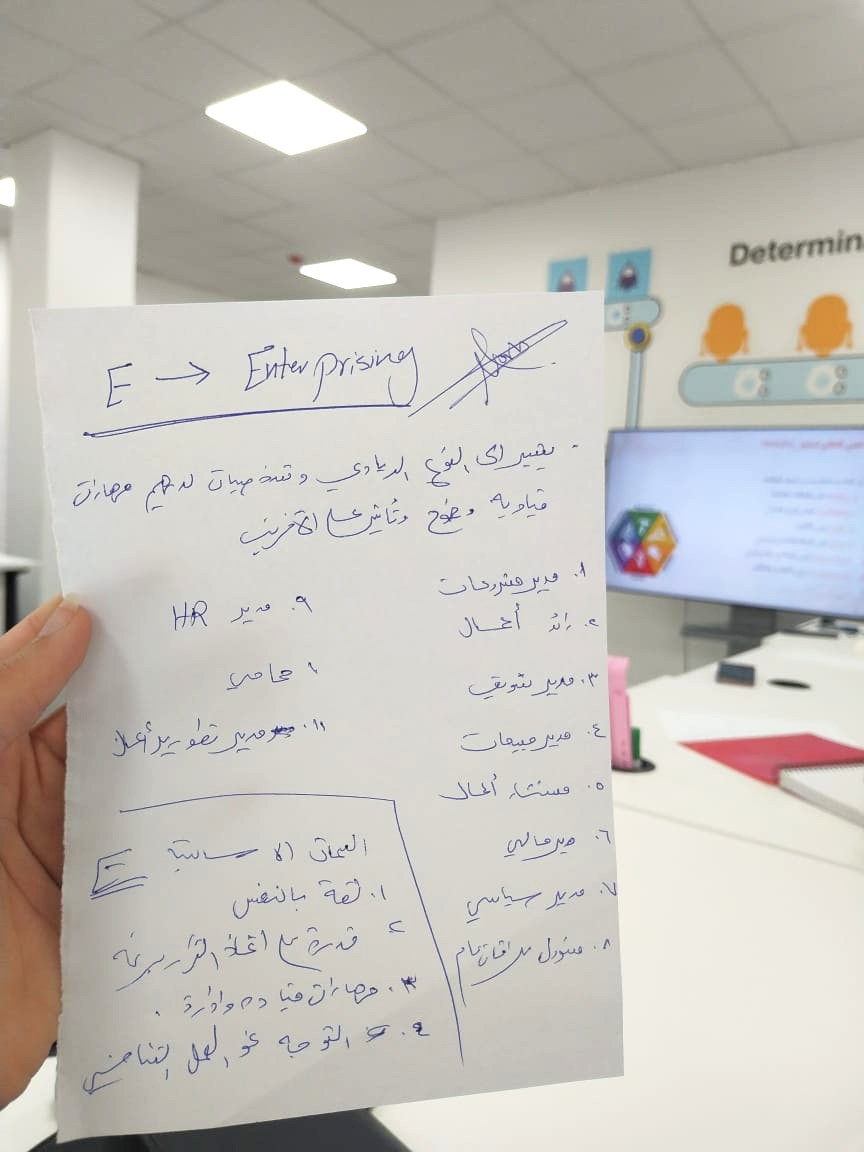 E → Enterprising
- يشير الى النوع الريادي وشخصيات لديهم مهارات
قيادية وطموح وتأثير على الآخرين
١. مدير مشروعات
٢. رائد أعمال
٣. مدير تسويق
٤. مدير مبيعات
٥. مستشار أعمال
٦. مدير مالي
٧. مدير سياسي
٨. مسؤول علاقات عامة
٩. مدير HR
١٠ محامي
١١. مدير تطوير أعمال
السمات الاساسية E
١. ثقة بالنفس
٢ قدرة على اتخاذ القرار بسرعة
٣. مهارات قيادة وادارة .
٤. التوجه نحو العمل التنافسي
Determin